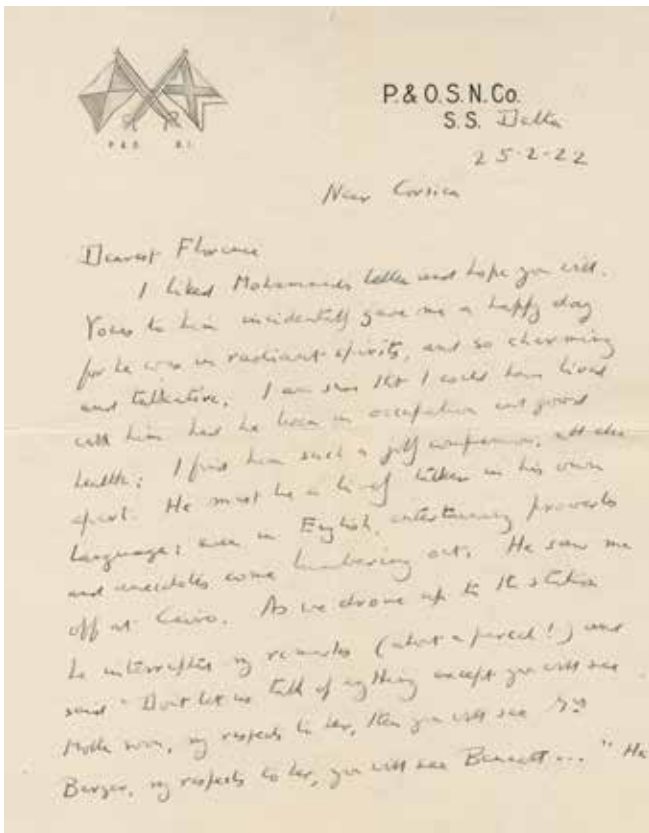 P. & O. S. N. Co.
S.S. Delta
P & O. B. I.
25-2-22
Near Corsica
Dearest Florence
I liked Mohammed's letter and hope you will.
Yours to him incidentally gave me a happy day
for he was in radiant spirits, and so charming
and talkative. I am sure that I could have lived
with him had he been in occupation and good
health; I find him such a jolly companion, all else
apart. He must be a lively talker in his own
language; even in English, entertaining proverbs
and anecdotes come lumbering out. He saw me
off at Cairo. As we drove up to the station
he interrupted my remarks (about a parcel!) and
said "Dont let us talk of anything except you will see
Mother soon, my respects to her, then you will see Mrs
Barger, my respects to her, you will see Bennett... " He